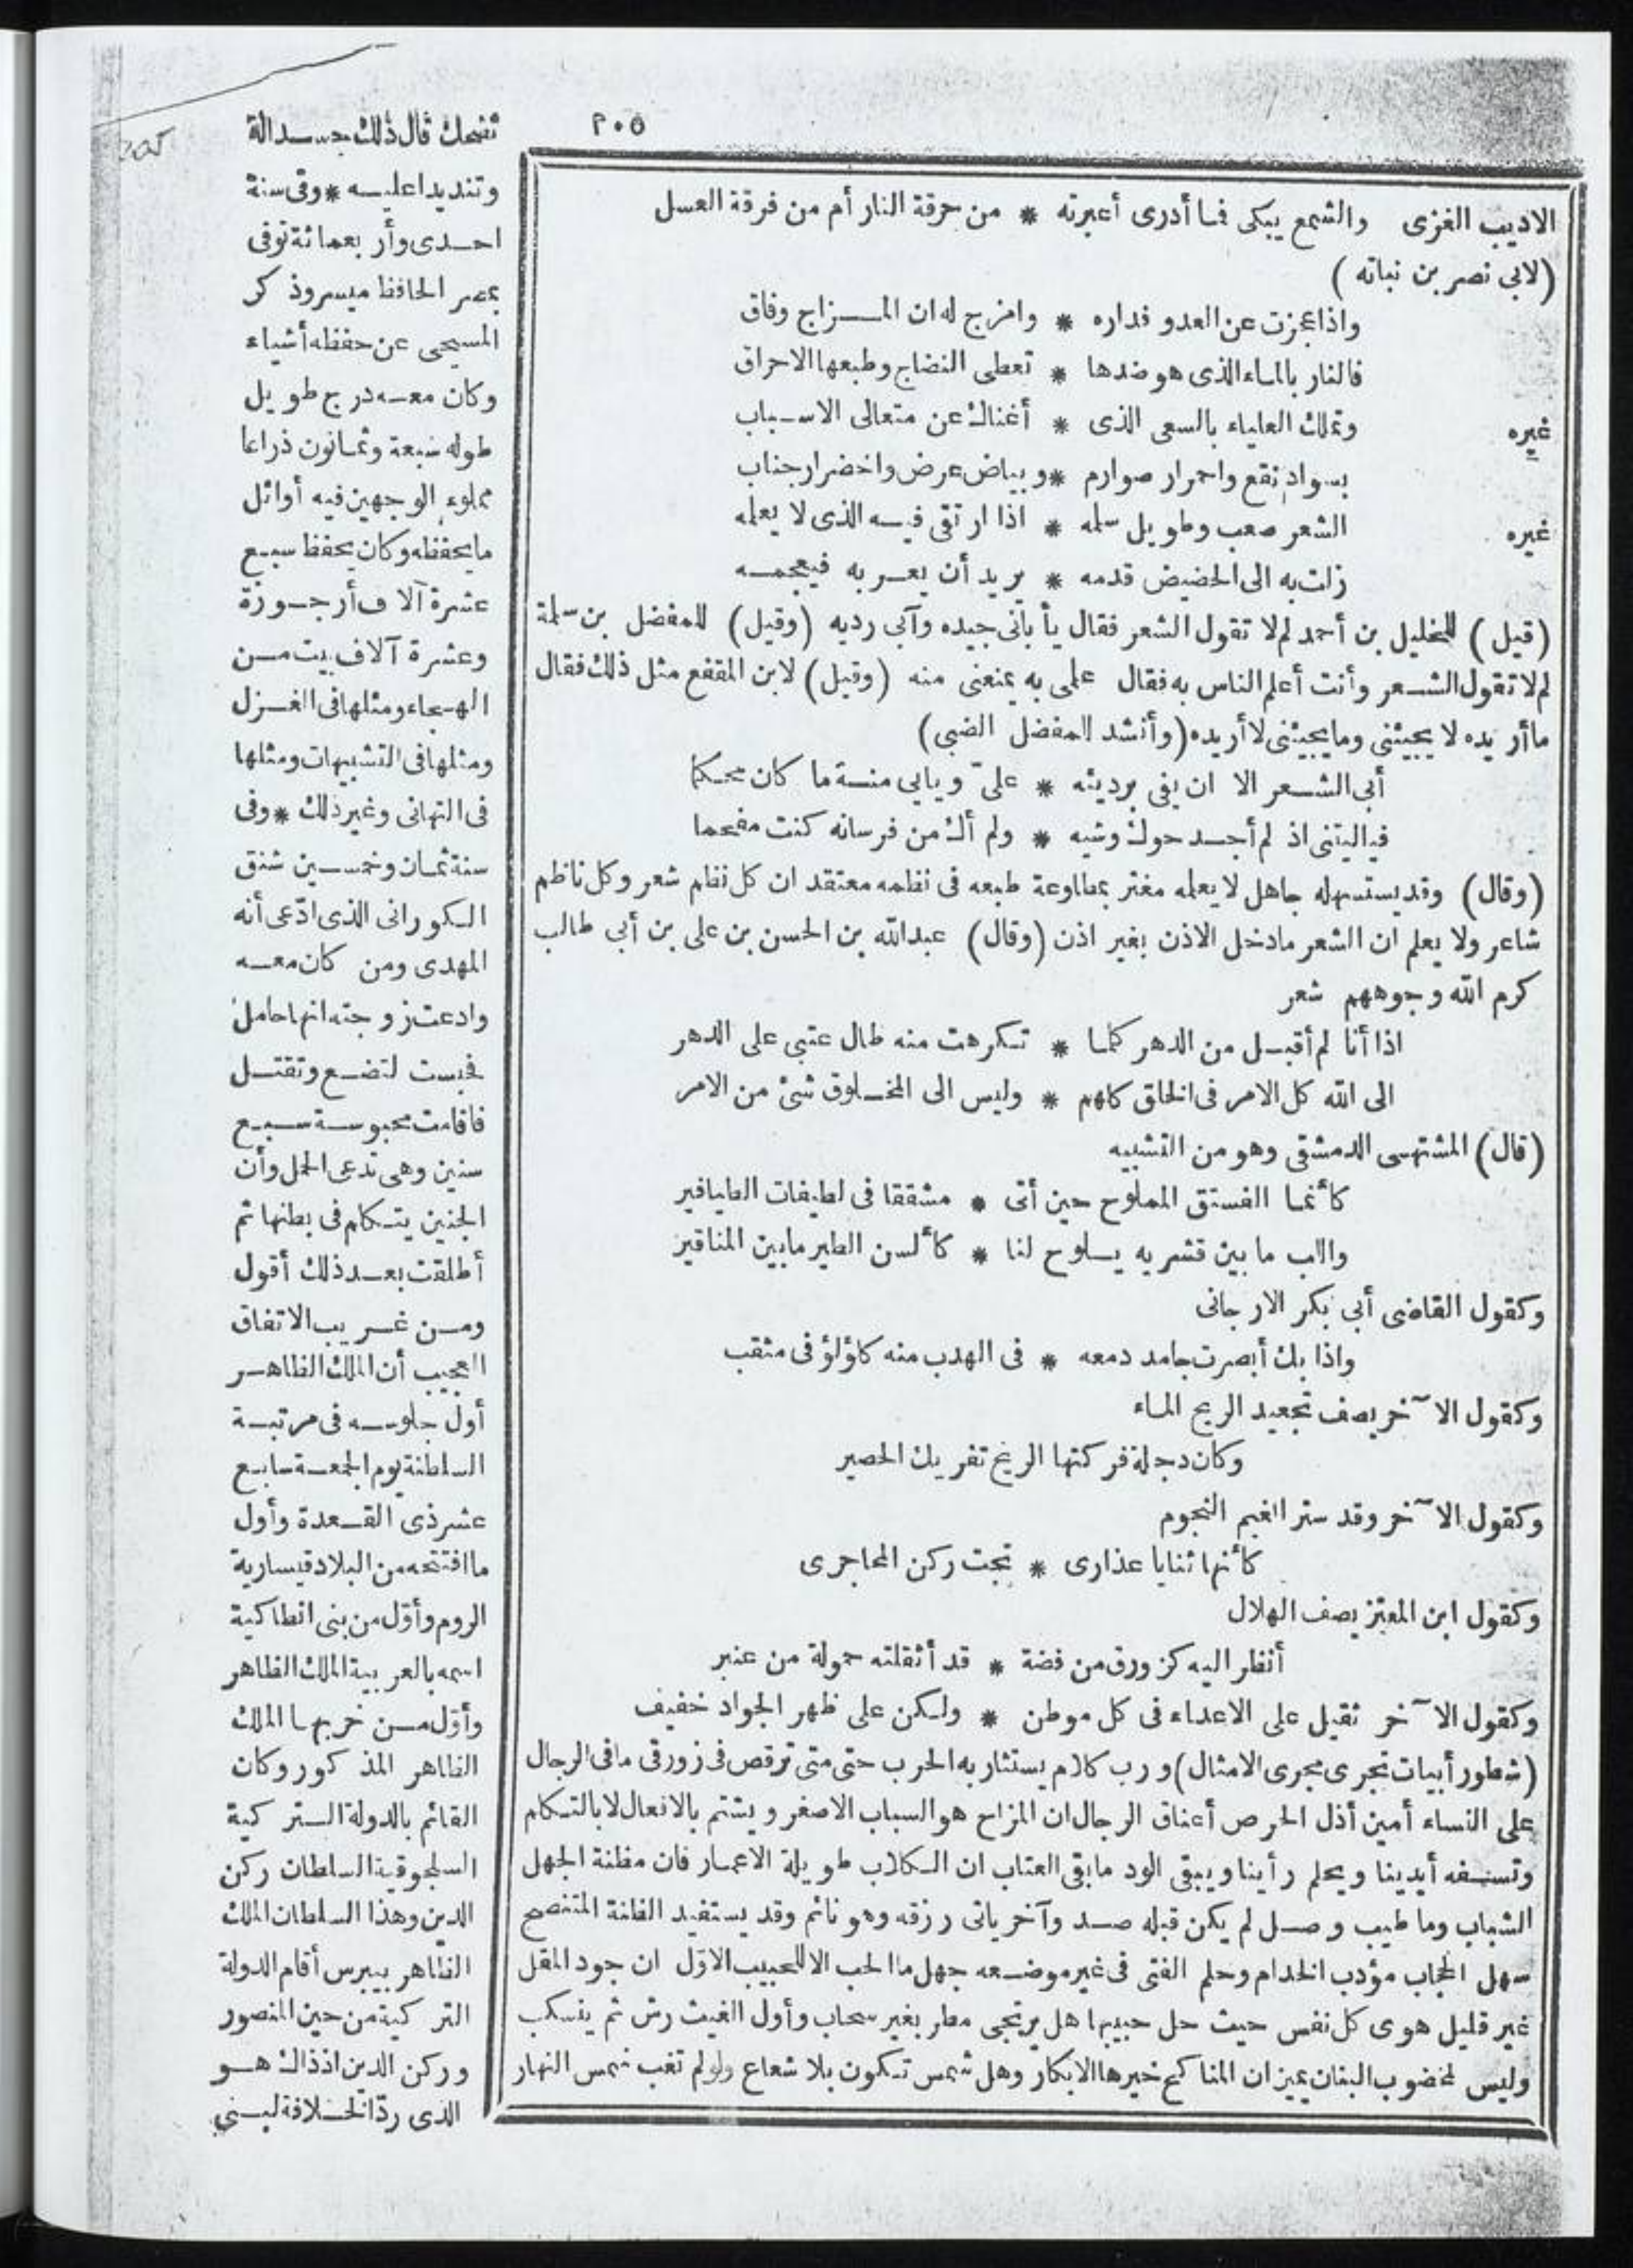 ٢٠٥
الاديب الغزى والشمع يبكى فما أدرى أعبرته * من حرقة النار أم من فرقة العسل
(لابي نصر بن نباته)
واذا عجزت عن العدو فداره * وامزج له ان المــزاج وفاق
فالنار بالماء الذى هو ضدها * تعطى النضاج وطبعها الاحراق
غيره وتملك العلياء بالسعى الذى * أغناك عن متعالى الاسـباب
بسواد نقع واحمرار صوارم * وبياض عرض واخضرار جناب
غيره الشعر صعب وطويل سلمه * اذا ارتقى فيـه الذى لا يعلمه
زلت به الى الحضيض قدمه * يريد أن يعـربه فيعجمـه
(قيل) للخليل بن أحمد لم لا تقول الشعر فقال يأباني جيده وآبى رديه (وقيل) للمفضل بن سلمة
لم لا تقول الشـعر وأنت أعلم الناس به فقال علمى به يمنعنى منه (وقيل) لابن المقفع مثل ذلك فقال
ما أريده لا يجيئنى وما يجيئنى لا أريده (وأنشد المفضل الضبى)
أبى الشـعر الا ان يفى برديئه * علىّ ويابى منـه ما كان محـكما
فياليتنى اذ لم أجـد حوك وشيه * ولم أك من فرسانه كنت مفحما
(وقال) وقد يستسهله جاهل لا يعلمه مغتر بمطاوعة طبعه فى نظمه معتقد ان كل نظم شعر وكل ناظم
شاعر ولا يعلم ان الشعر مادخل الاذن بغير اذن (وقال) عبد الله بن الحسن بن على بن أبي طالب
كرم الله وجوههم شعر
اذا أنا لم أقبـل من الدهر كلما * تـكرهت منه طال عتبى على الدهر
الى الله كل الامر فى الخلق كلهم * وليس الى المخـلوق شئ من الامر
(قال) المشتهى الدمشقى وهو من التشبيه
كأنما الفستق المملوح حين أتى * مشققا فى لطيفات الطيافير
واللب ما بين قشريه يـلوح لنا * كألسن الطير ما بين المناقير
وكقول القاضى أبى بكر الارجانى
واذا بك أبصرت جامد دمعه * فى الهدب منه كلؤلؤ فى مثقب
وكقول الآخر يصف تجعيد الريح الماء
وكان دجلة فركتها الريح تفريك الحصير
وكقول الآخر وقد ستر الغيم النجوم
كأنها ثنايا عذارى * تحت ركن المحاجرى
وكقول ابن المعتز يصف الهلال
أنظر اليه كزورق من فضة * قد أثقلته حمولة من عنبر
وكقول الآخر ثقيل على الاعداء فى كل موطن * ولـكن على ظهر الجواد خفيف
(شطور أبيات تجرى مجرى الامثال) ورب كلام يستثار به الحرب حتى متى ترقص فى زورقى ما فى الرجال
على النساء أمين أذل الحرص أعناق الرجال ان المزاح هو السباب الاصغر ويشتم بالافعال لا بالتـكلم
وتسـفه أيدينا ويحلم رأينا ويبقى الود ما بقى العتاب ان الـكلاب طويلة الاعمار فان مظنة الجهل
الشباب وما طيب وصـل لم يكن قبله صـد وآخر ياتى رزقه وهو نائم وقد يستفيد الظنة المتنصح
سهل الحجاب مؤدب الخدام وحلم الفتى فى غير موضـعه جهل ما الحب الا للحبيب الاوّل ان جود المقل
غير قليل هوى كل نفس حيث حل حبيبها هل يرتجى مطر بغير سحاب وأول الغيث رش ثم ينسكب
وليس لمخضوب البنان يمين ان المناكح خيرها الابكار وهل شمس تـكون بلا شعاع ولو لم تغب شمس النهار
تفضحك قال ذلك حسـدا له
وتنديدا عليـه * وفى سنة
احـدى وأربعمائة توفى
بمصر الحافظ ميسر وذكر
المسيحى عن حفظه أشياء
وكان معـه درج طويل
طوله سبعة وثمـانون ذراعا
مملوء الوجهين فيه أوائل
ما يحفظه وكان يحفظ سبع
عشرة آلاف أرجـوزة
وعشرة آلاف بيت مـن
الهـجاء ومثلها فى الغـزل
ومثلها فى التشبيهات ومثلها
فى التهانى وغير ذلك * وفى
سنة ثمـان وخمسـين شنق
الـكورانى الذى ادّعى أنه
المهدى ومن كان معـه
وادعت زوجته انها حامل
فحبست لتضـع وتقتـل
فاقامت محبوسـة سـبع
سنين وهى تدعى الحمل وأن
الجنين يتـكلم فى بطنها ثم
أطلقت بعـد ذلك أقول
ومـن غـريب الاتفاق
العجيب أن الملك الظاهـر
أول جلوسـه فى مرتبـة
السلطنة يوم الجمعـة سابع
عشر ذى القـعدة وأول
ما افتتحه من البلاد قيسارية
الروم وأوّل من بنى انطاكية
اسمه بالعربية الملك الظاهر
وأوّل مـن خربها الملك
الظاهر المذكور وكان
القائم بالدولة الـتركية
السلجوقية السلطان ركن
الدين وهذا السلطان الملك
الظاهر بيبرس أقام الدولة
التركية من حين المنصور
وركن الدين اذذاك هـو
الذى ردّ الخـلافة لبـنى